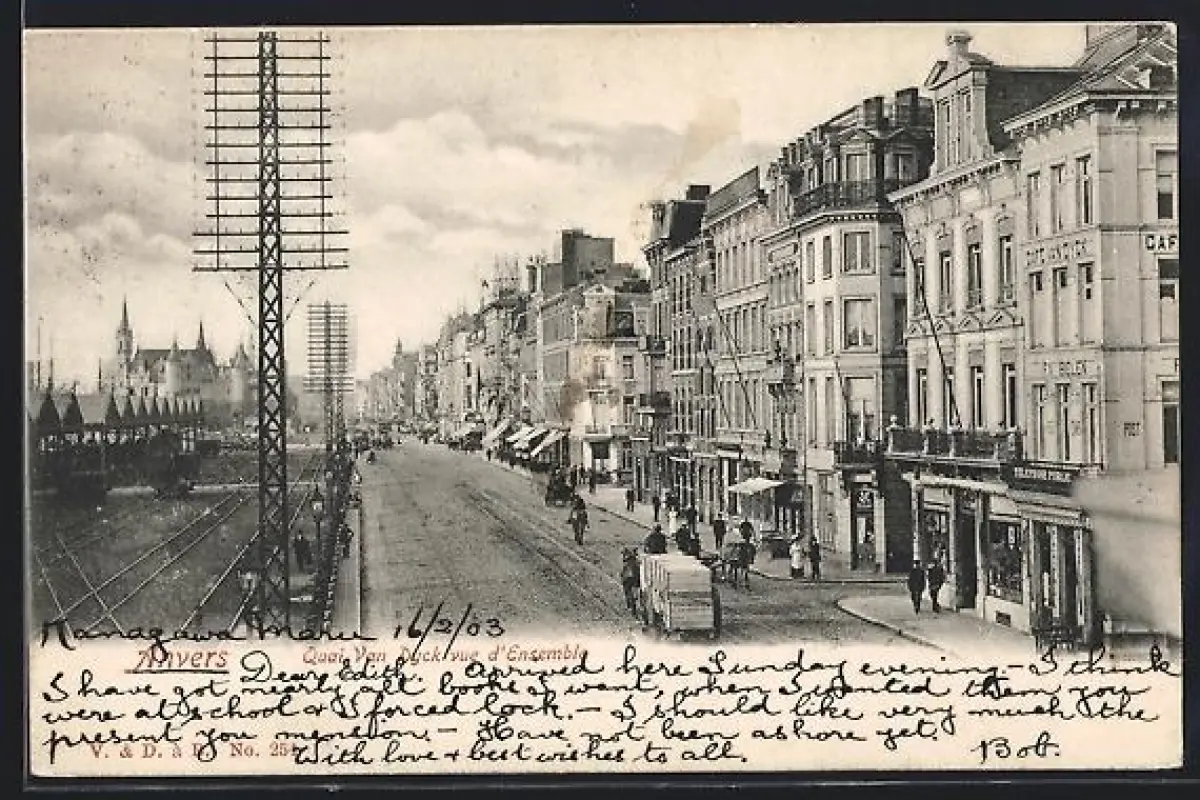 CAFÉ
CAFÉ VAN DYCK
Kanagawa Maru 16/2/03
Anvers
Quai Van Dyck vue d'Ensemble
Dear Edith. Arrived here Sunday evening - I think
I have got nearly all books I want, when I wanted them you
were at school & I forced lock. - I should like very much the
present you mention. - Have not been ashore yet.
V. & D. à No. 25
With love & best wishes to all. Bob.